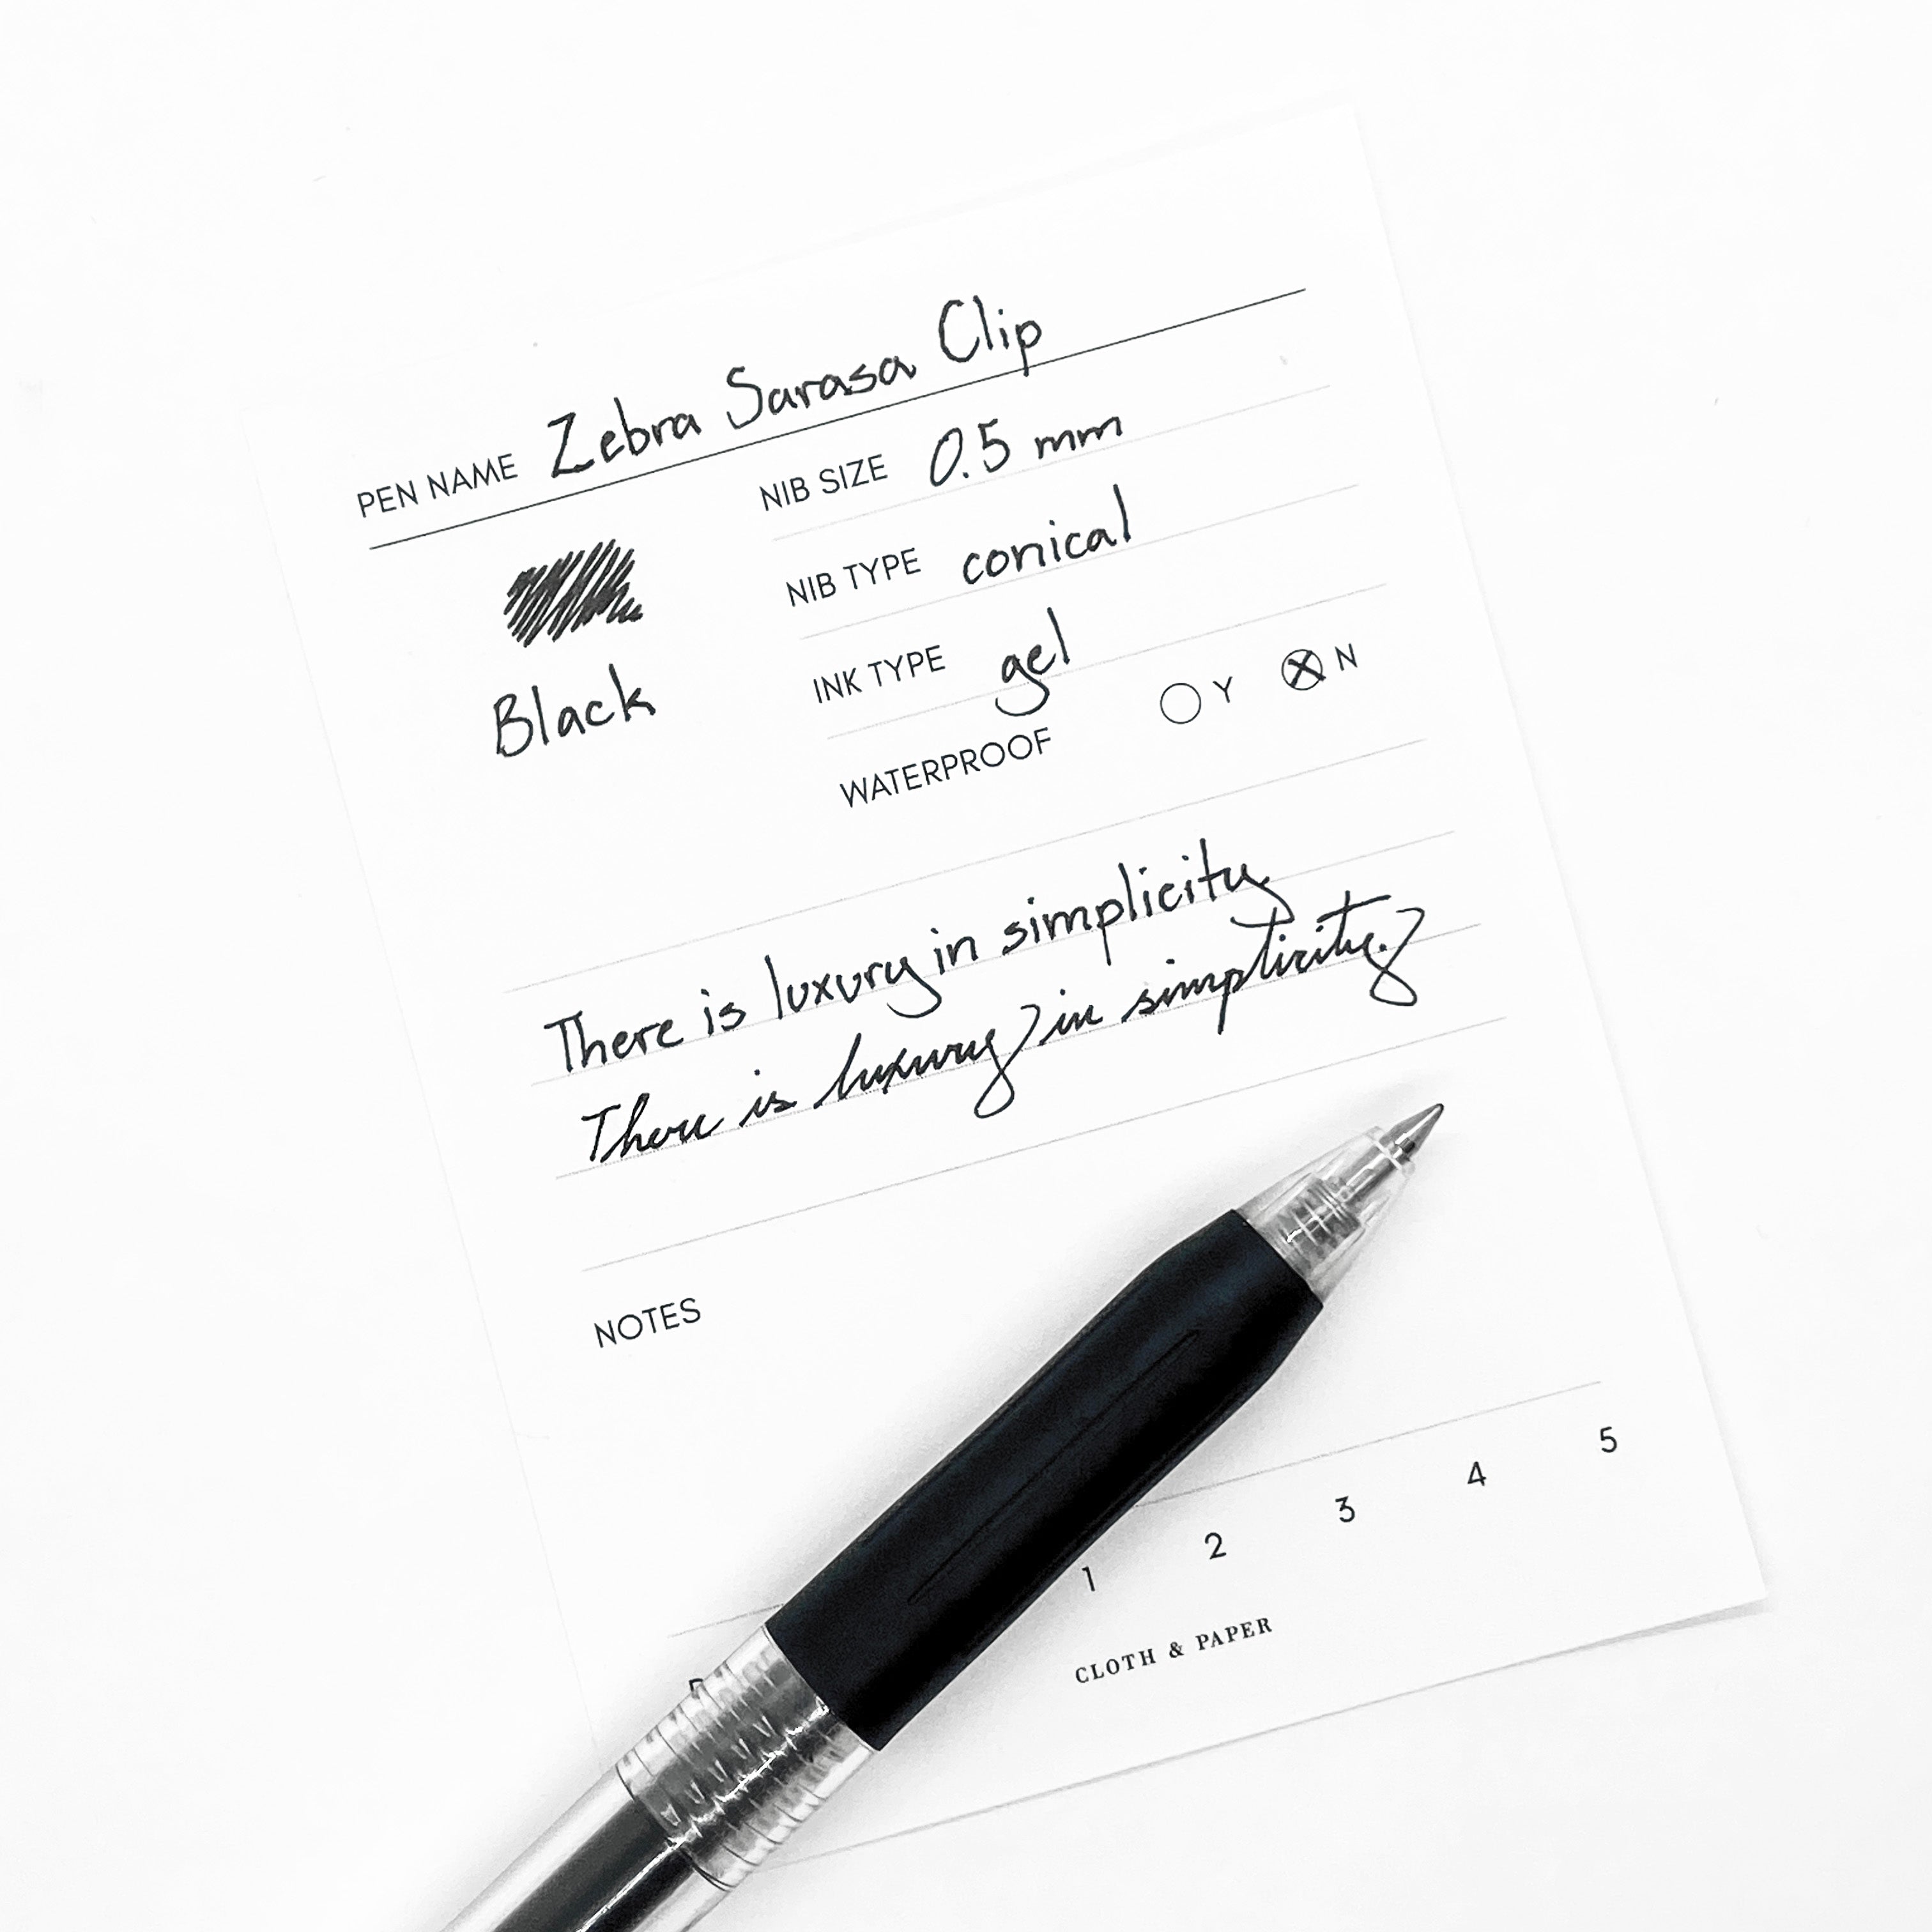 PEN NAME Zebra Sarasa Clip
NIB SIZE 0.5 mm
NIB TYPE conical
INK TYPE gel
WATERPROOF Y N
Black
There is luxury in simplicity
There is luxury in simplicity.
NOTES
1 2 3 4 5
CLOTH & PAPER